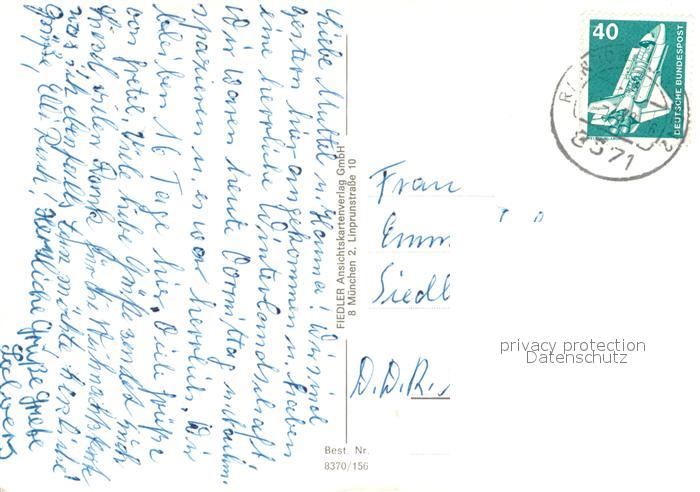 Liebe Mutter u. Hanna! Wir sind
gestern hier angekommen u. haben
eine herrliche Winterlandschaft.
Wir waren heute Vormittag
spazieren u. es war herrlich. Wir
bleiben 16 Tage hier. Viele Grüße
von Grete. Viele liebe Grüße
vielen Dank für die Weihnachtskarte
was ich ebenfalls tun möchte herzliche
Grüße,
Herzliche Grüße Grete
FIEDLER Ansichtskartenverlag GmbH
8 München 2, Linprunstraße 10
Best. Nr.
8370/156
40
DEUTSCHE BUNDESPOST
8371
Frau
Emm
Siedl
D.D.R.
privacy protection
Datenschutz